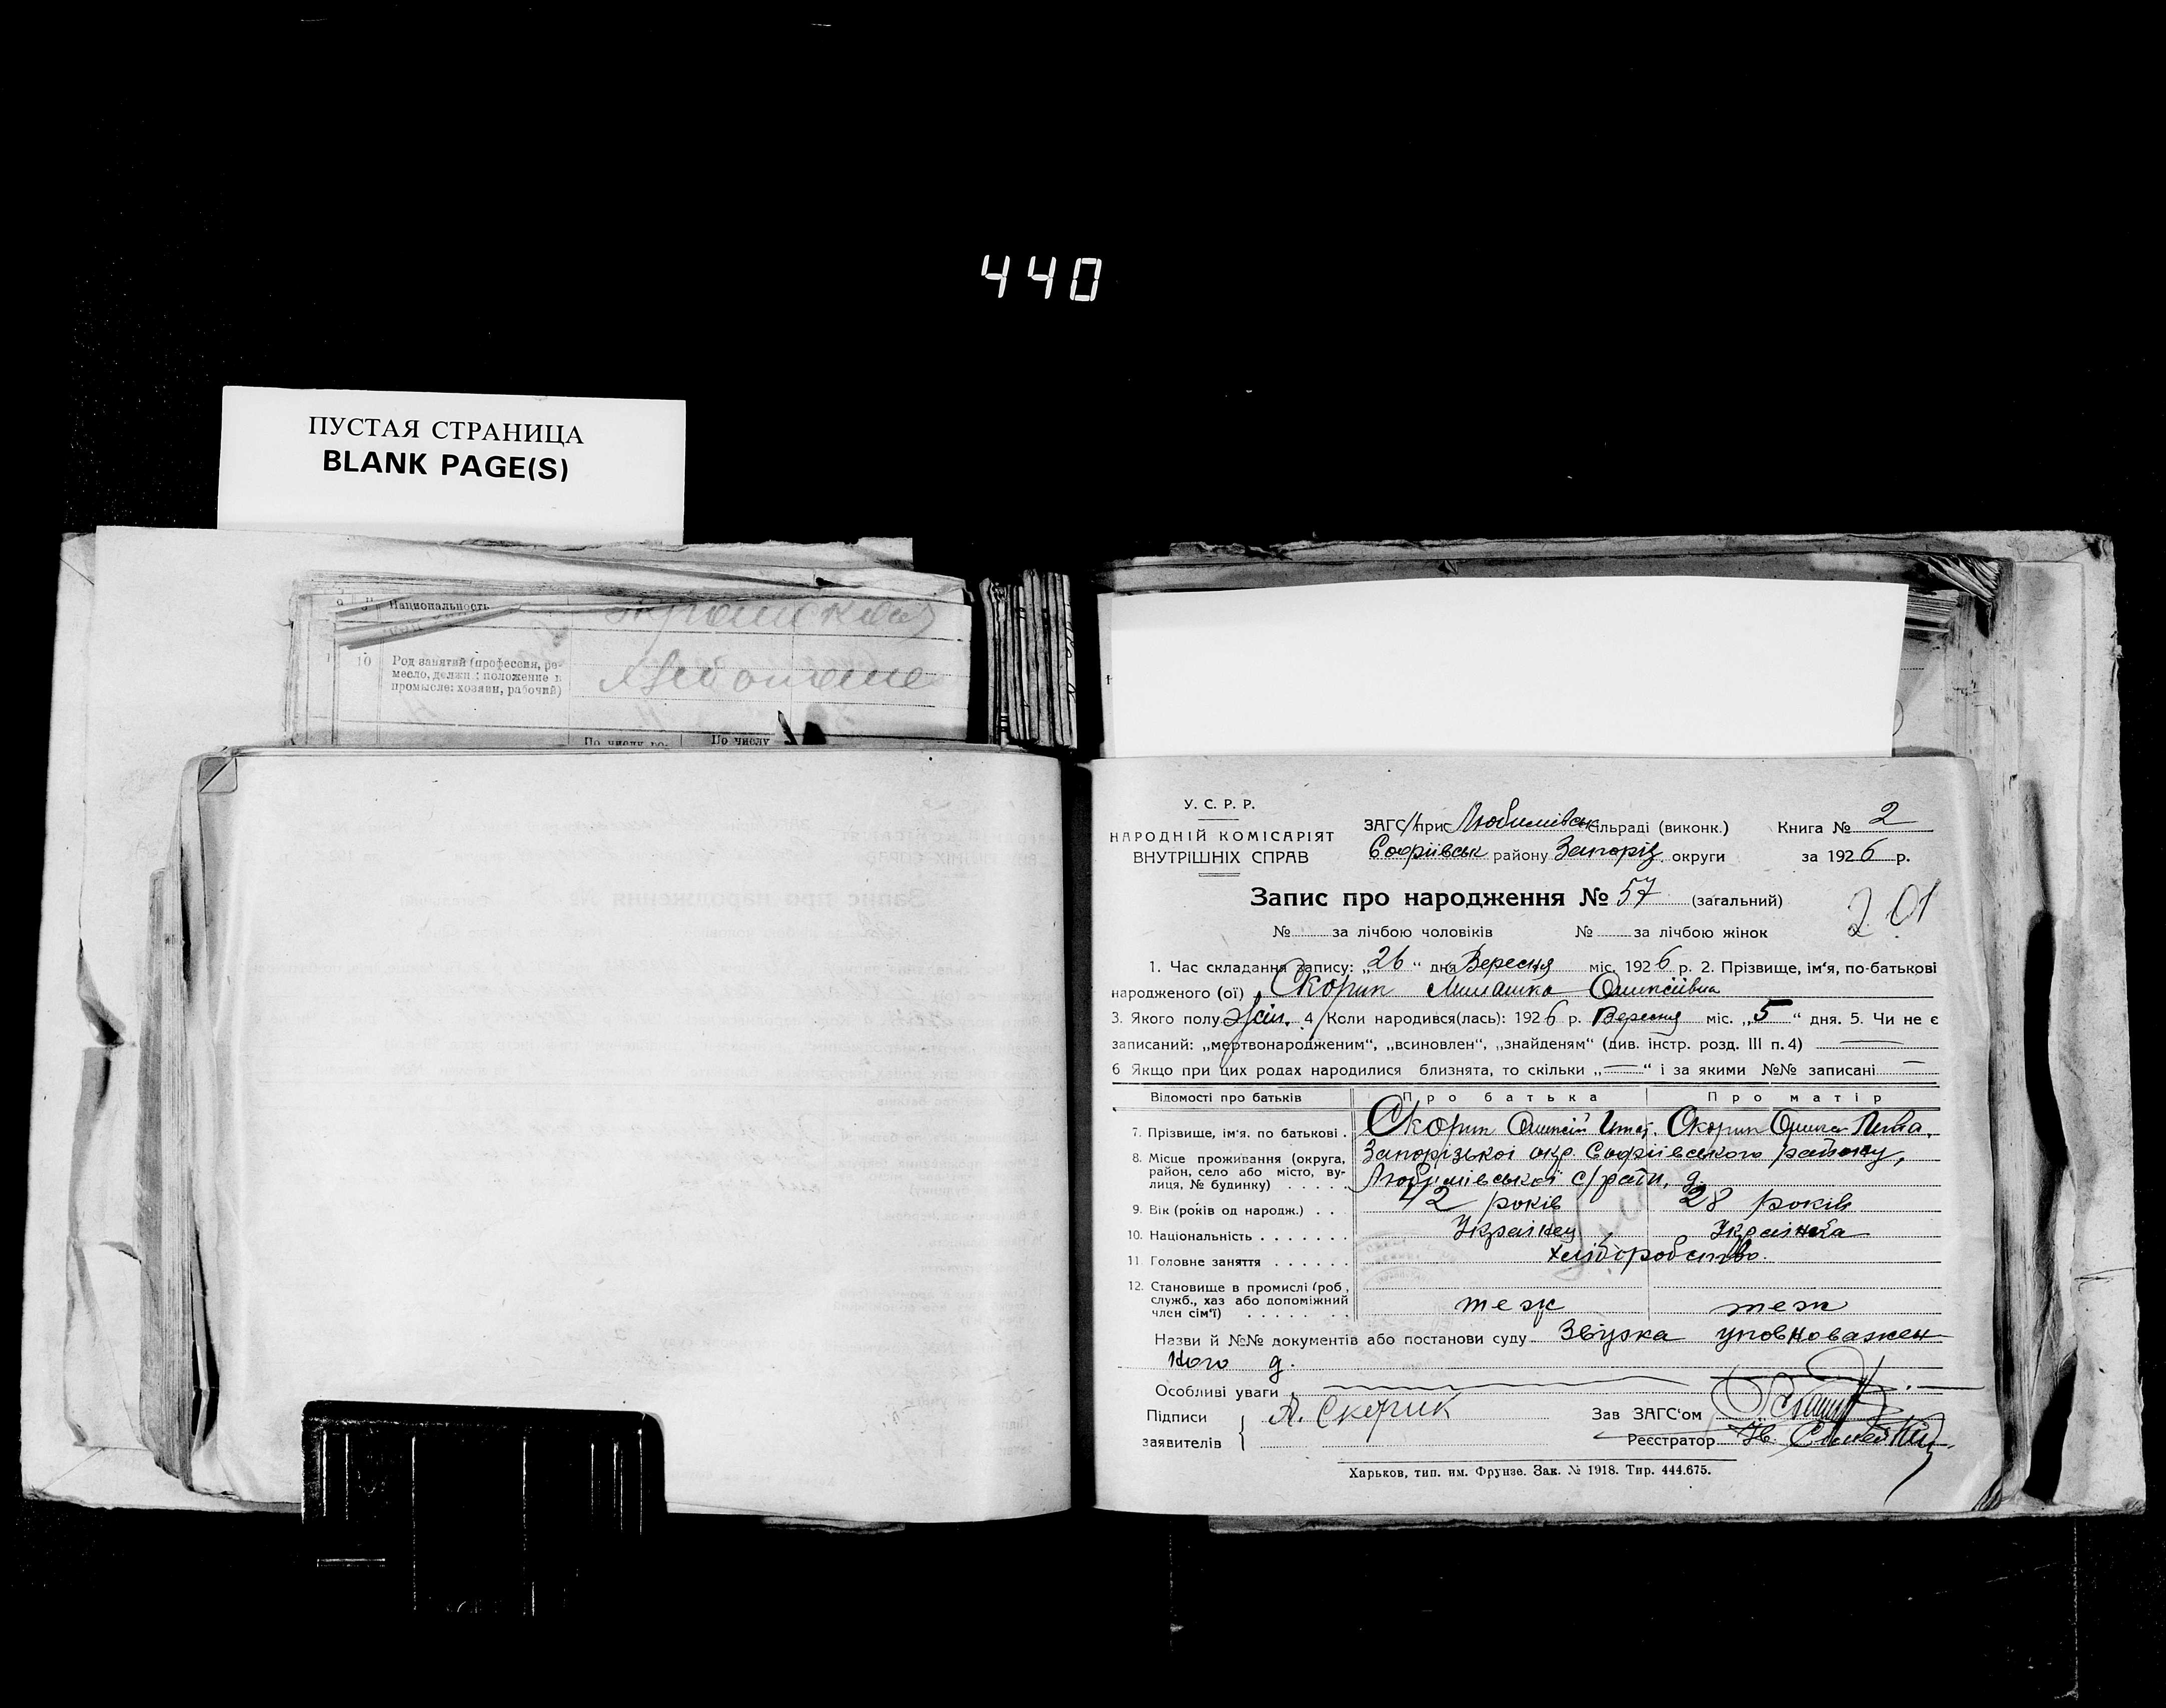 440
ПУСТАЯ СТРАНИЦА
BLANK PAGE(S)
Национальность
10 Род занятий (профессия, ре-
месло, должн.: положение в
промысле: хозяин, рабочий)
По числу
У. С. Р. Р.
НАРОДНІЙ КОМІСАРІЯТ
ВНУТРІШНІХ СПРАВ
ЗАГС/при Любимівськ сільраді (виконк.) Книга № 2
Софріївськ району Запоріз. округи за 1926 р.
Запис про народження № 57 (загальний)
201
№ за лічбою чоловіків № за лічбою жінок
1. Час складання запису: „26“ дня Вересня міс. 1926 р. 2. Прізвище, ім'я, по-батькові
народженого (ої) Скорик Олексіївна
3. Якого полу жін. 4 Коли народився(лась): 1926 р. Вересня міс. „5“ дня. 5. Чи не є
записаний: „мертвонародженим“, „всиновлен“, „знайденям“ (див. інстр. розд. III п. 4)
6 Якщо при цих родах народилися близнята, то скільки „—“ і за якими №№ записані —
Відомості про батьків Про батька Про матір
7. Прізвище, ім'я. по батькові . Скорик Олексій Скорик
8. Місце проживання (округа, Запорізької окр. Софріївського району,
район, село або місто, ву-
лиця, № будинку) . . . . . Любимівської с/ради,
9. Вік (років од народж.) . . 42 років 28 років
10. Національність . . . . . . . Українец Українка
11. Головне заняття . . . . . . хліборобство.
12. Становище в промислі (роб.,
служб., хаз або допоміжний
член сім'ї) . . . . . . . теж теж
Назви й №№ документів або постанови суду Звірка уповноважен
ного д.
Особливі уваги
Підписи А. Скорик Зав ЗАГС'ом
заявителів Реєстратор
Харьков, тип. им. Фрунзе. Зак. № 1918. Тир. 444.675.